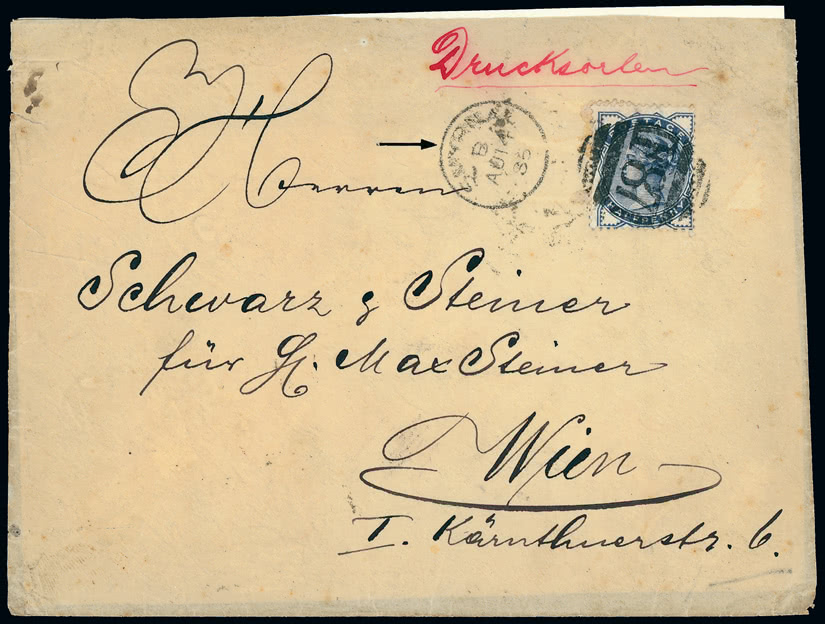 Drucksorten
B
AU 14
86
POSTAGE
HALFPENNY
Herren
Schwarz & Steiner
für H. Max Steiner
Wien
I. Kärnthnerstr. 6.